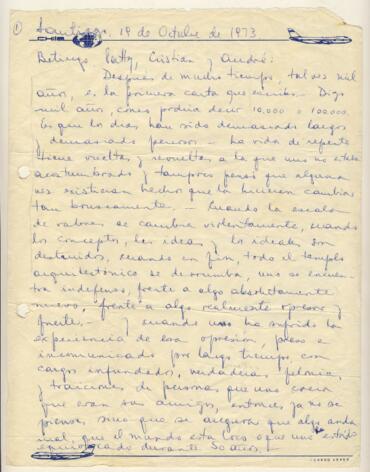 ①
Santiago, 19 de Octubre de 1973
Patty, Cristian y André:
Después de mucho tiempo, tal vez mil
años, es la primera carta que escribo. Digo
mil años, como podría decir 10.000 o 100.000.
Es que los días han sido demasiado largos
y demasiado penosos. - La vida de repente
tiene vueltas y revueltas a la que uno no estaba
acostumbrado y tampoco pensó que alguna
vez existieran hechos que la hicieran cambiar
tan bruscamente. - Cuando la escala
de valores se cambia violentamente, cuando
los conceptos, las ideas y los ideales son
destruidos, cuando en fin, todo el templo
arquitectónico se derrumba, uno se encuen-
tra indefenso, frente a algo absolutamente
nuevo, frente a algo realmente opresor y
fuerte. - Y cuando uno ha sufrido la
experiencia de esa opresión, preso e
incomunicado por largo tiempo, con
cargos infundados, verdaderas felonías
y traiciones de personas que uno creía
que eran sus amigos, entonces ya no se
piensa, sino que se asegura que algo anda
mal; que el mundo esta loco o que uno estuvo
equivocado durante 30 años. -